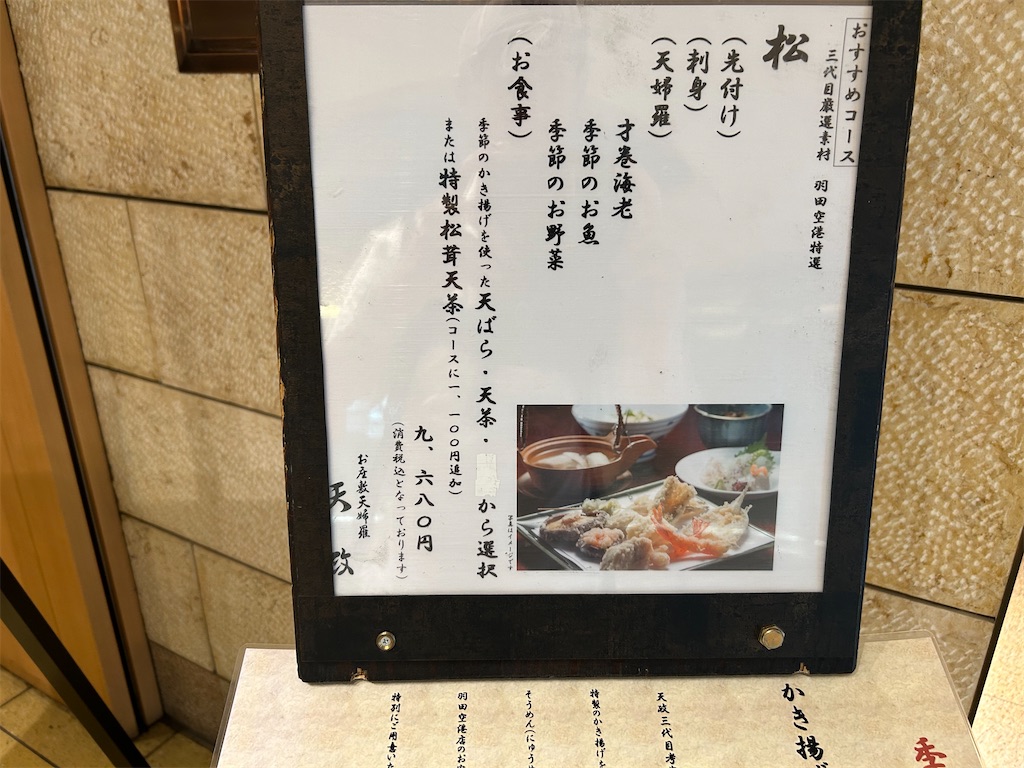 おすすめコース
三代目厳選素材　羽田空港特選
松
(先付け)
(刺身)
(天婦羅)
才巻海老
季節のお魚
季節のお野菜
(お食事)
季節のかき揚げを使った天ばら・天茶・から選択
または特製松茸天茶(コースに一、一〇〇円追加)
九、六八〇円
(消費税込となっております)
お座敷天婦羅
天政
写真はイメージです
季
かき揚げ
天政三代目考
特製のかき揚げを
そうめん(にゅうめ
羽田空港店のお
特別にご用意いた